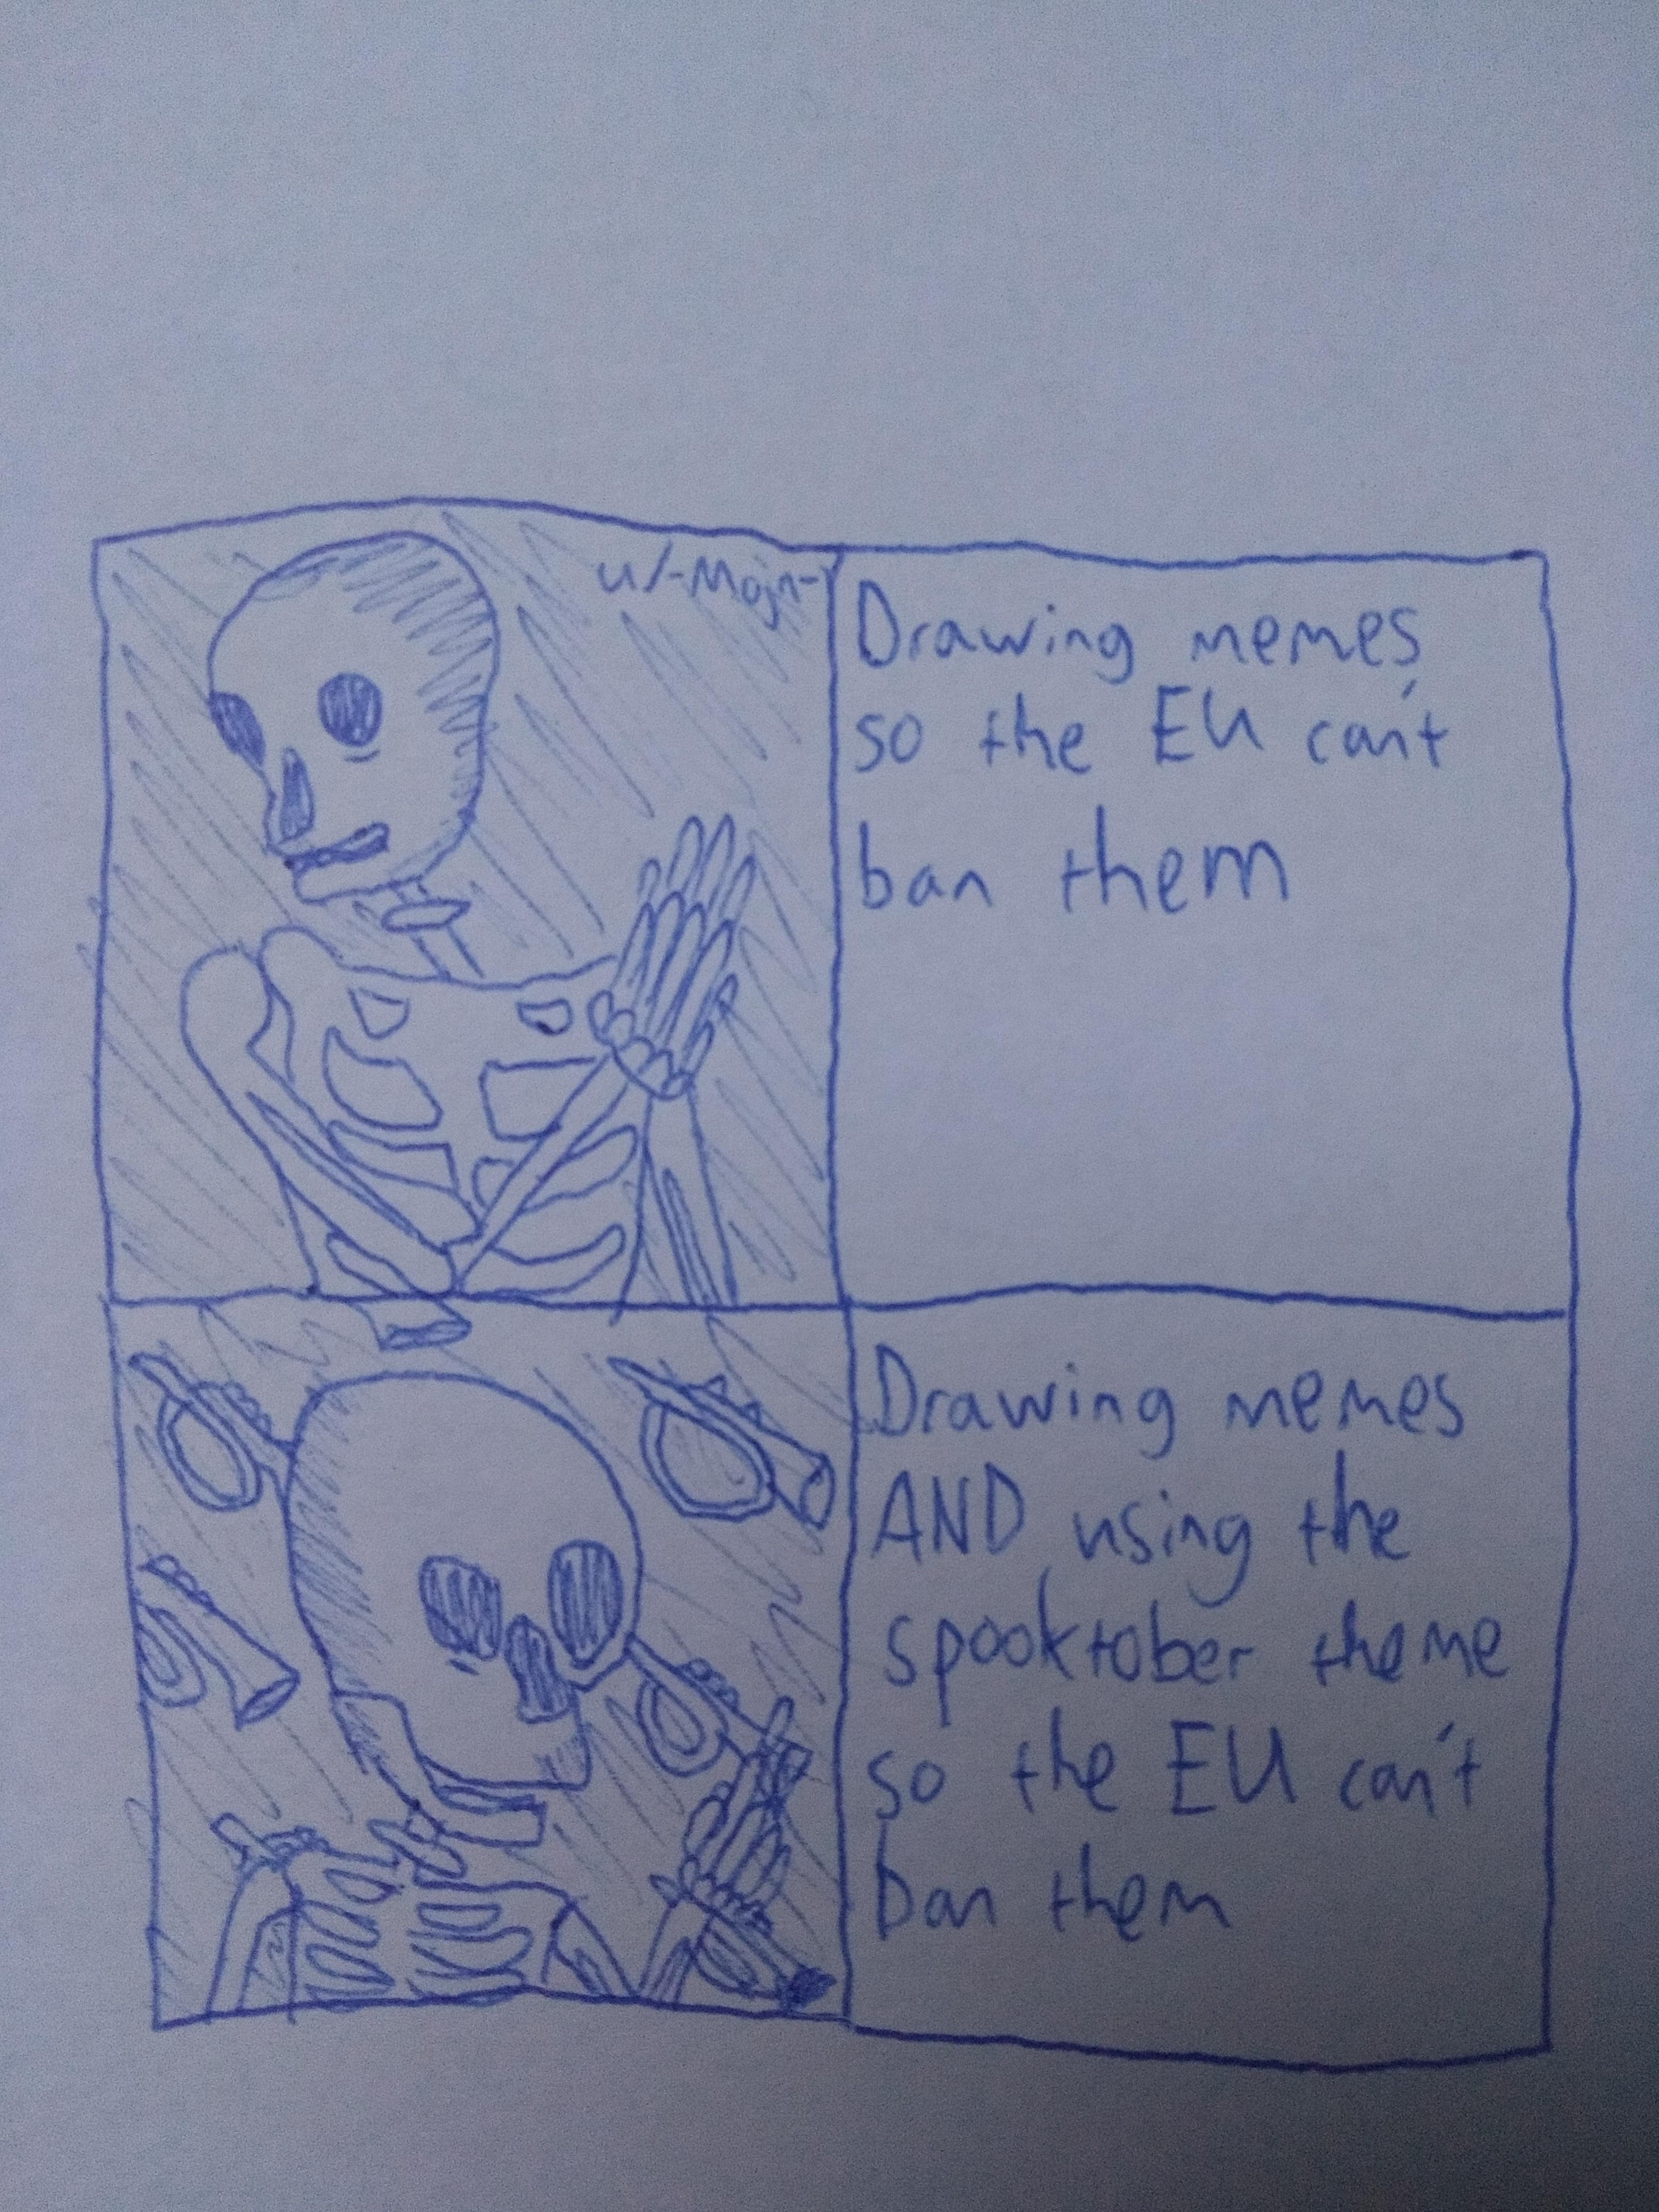 u/-Mojn-
Drawing memes
so the EU can't
ban them
Drawing memes
AND using the
spooktober theme
so the EU can't
ban them